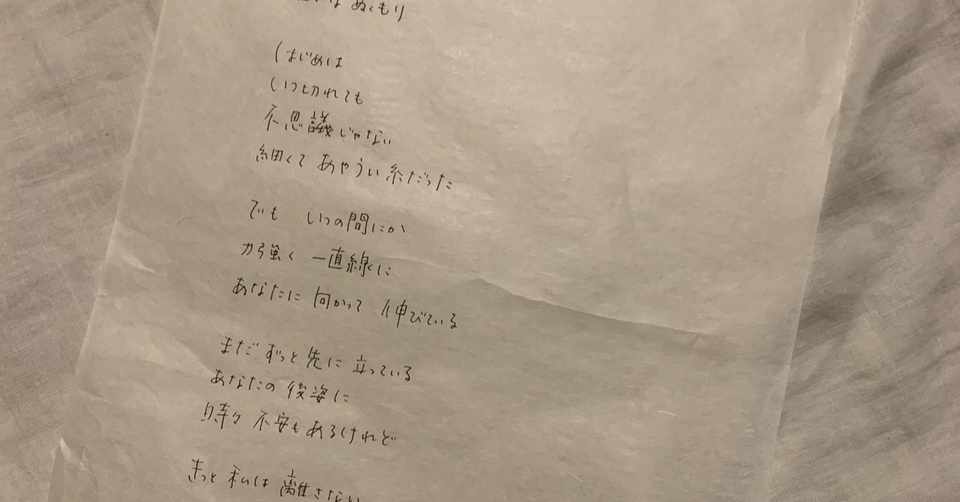 ぬくもり
はじめは
いつ切れても
不思議じゃない
細くて あやうい 糸だった
でも いつの間にか
力強く 一直線に
あなたに 向かって 伸びている
まだ ずっと 先に 立っている
あなたの 後姿に
時々 不安も あるけれど
きっと 私は 離さない